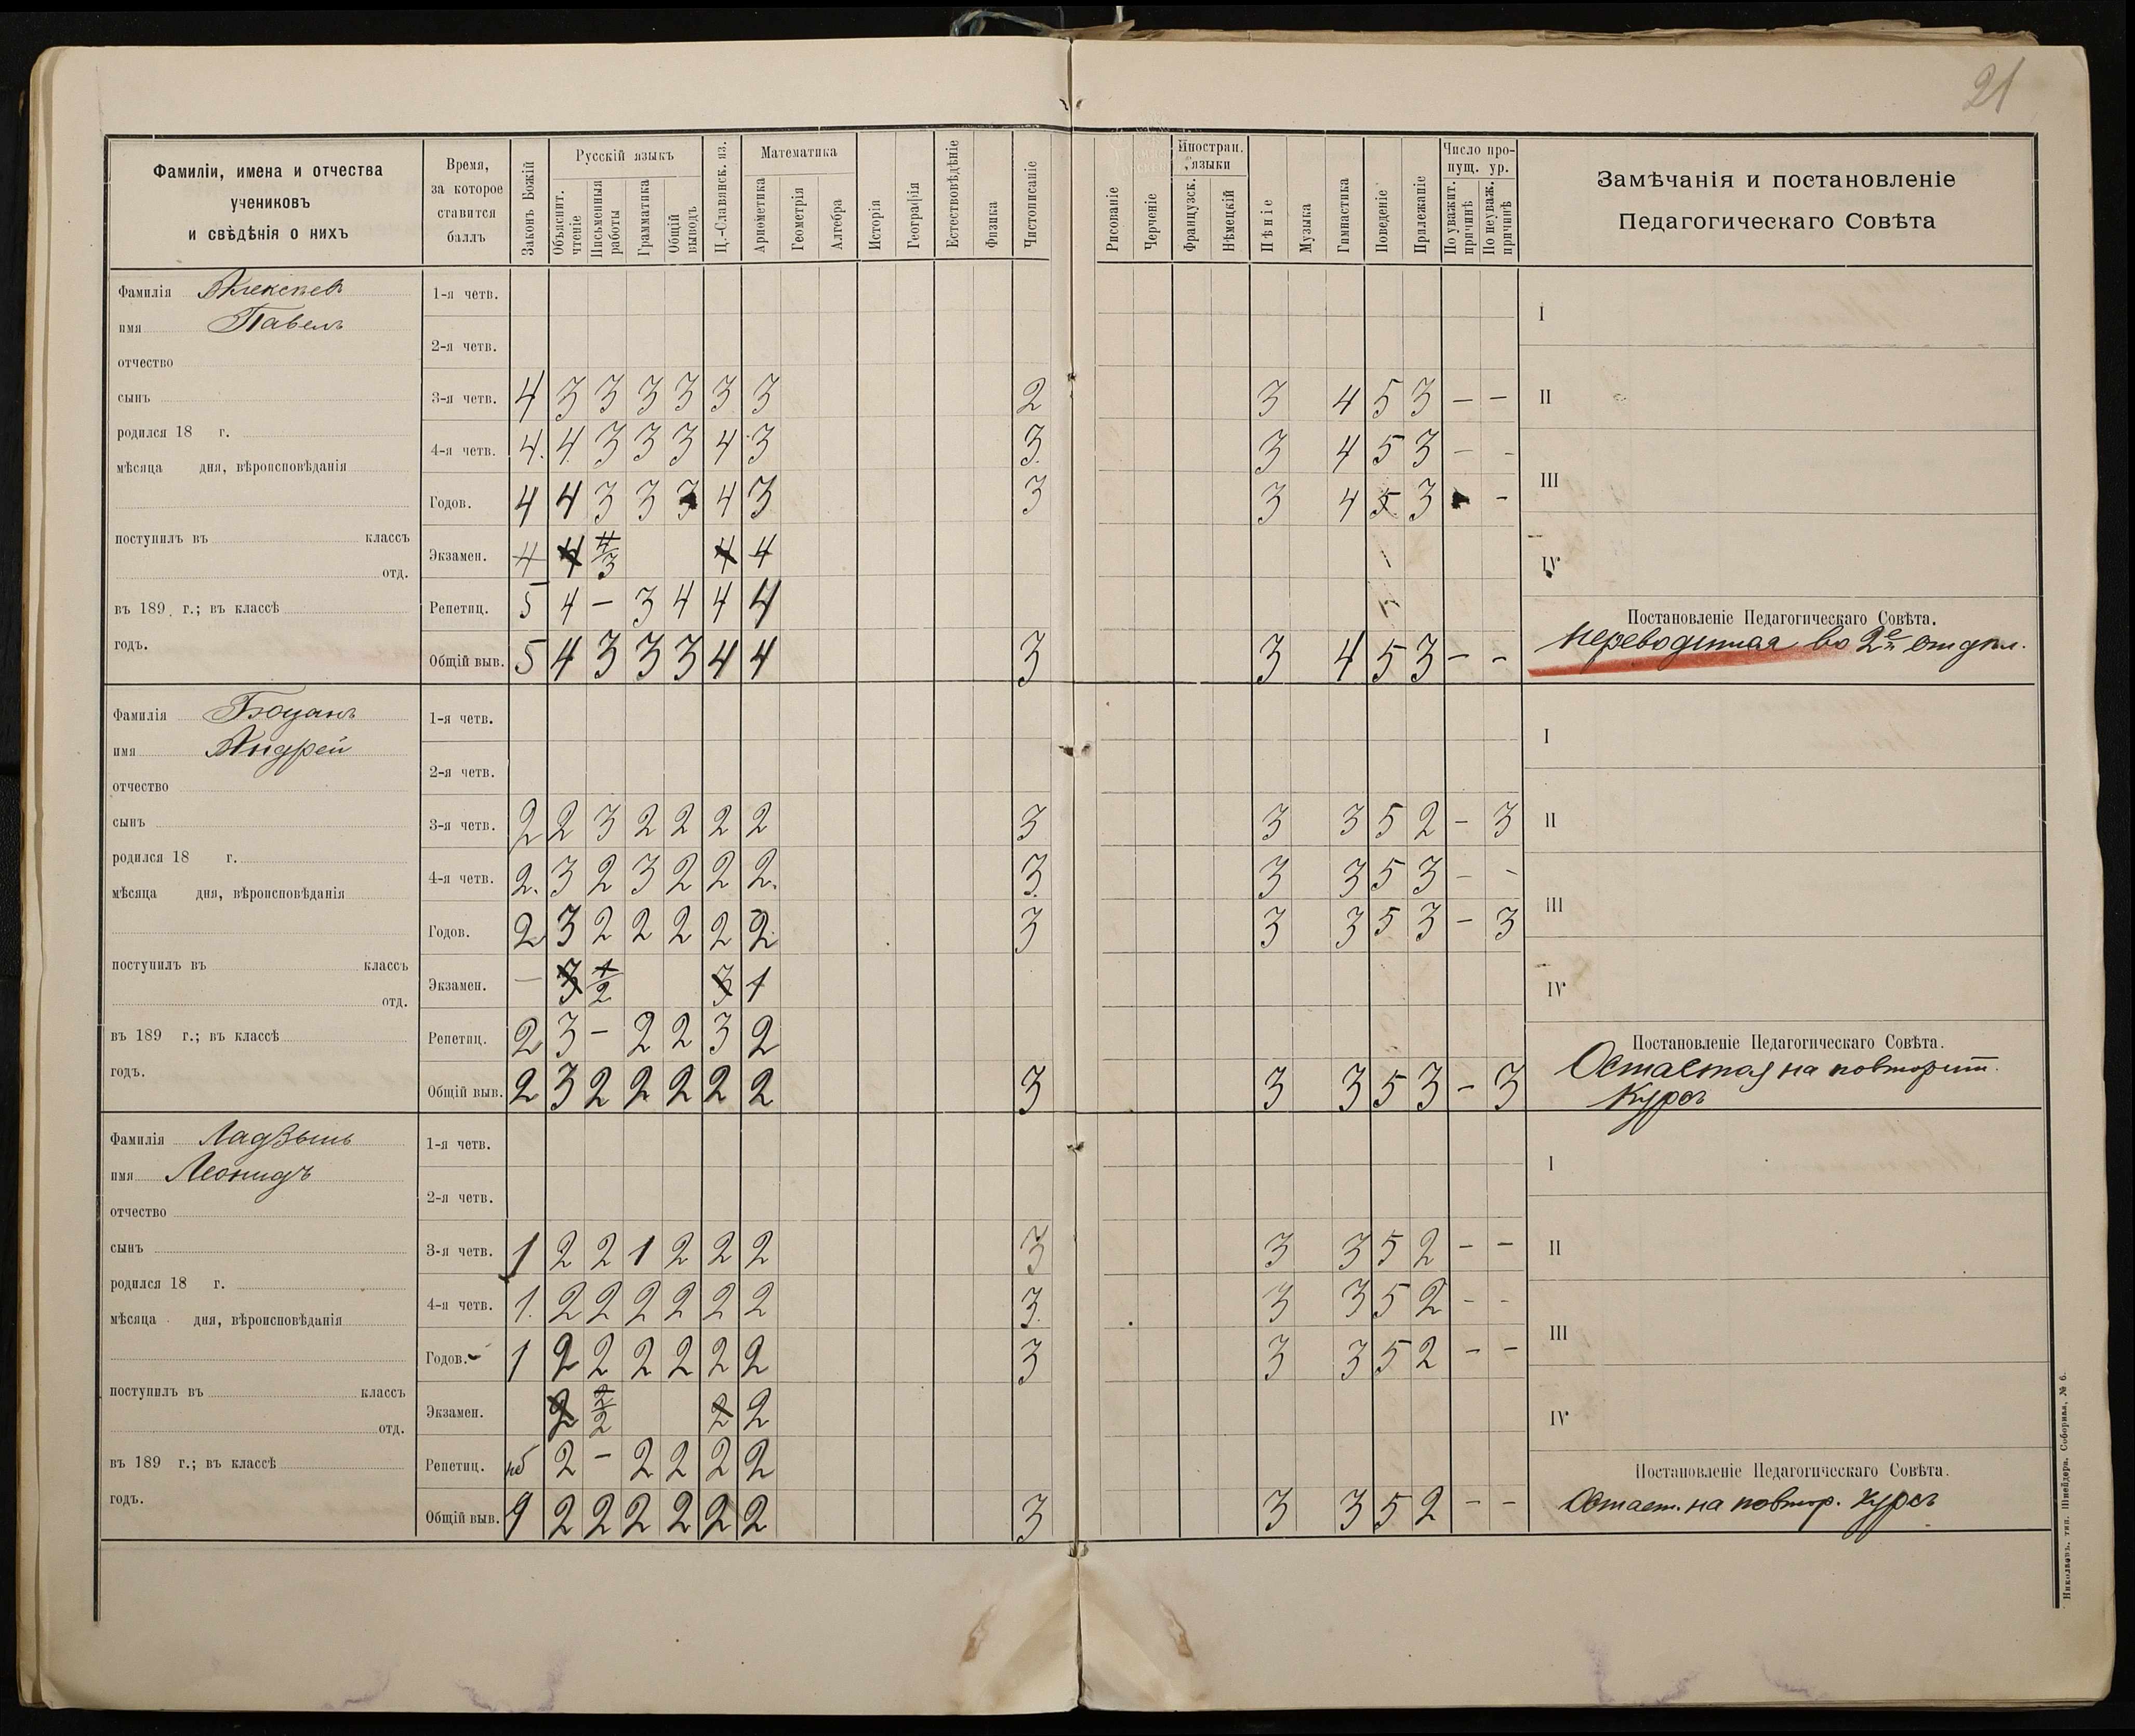 21
Фамиліи, имена и отчества
учениковъ
и свѣдѣнія о нихъ
Время,
за которое
ставится
баллъ
Законъ Божій
Русскій языкъ
Объяснит. чтеніе
Письменныя работы
Грамматика
Общій выводъ
Ц.-Славянск. яз.
Математика
Ариѳметика
Геометрія
Алгебра
Исторія
Географія
Естествовѣдѣніе
Физика
Чистописаніе
Рисованіе
Черченіе
Иностран. языки
Французск.
Нѣмецкій
Пѣніе
Музыка
Гимнастика
Поведеніе
Прилежаніе
Число пропущ. ур.
По уважит. причинѣ
По неуваж. причинѣ
Замѣчанія и постановленіе
Педагогическаго Совѣта
Фамилія Алексѣев
имя Павелъ
отчество
сынъ
родился 18 г.
мѣсяца дня, вѣроисповѣданія
поступилъ въ классъ
отд.
въ 189 г.; въ классѣ
годъ.
1-я четв.
2-я четв.
3-я четв. 4 3 3 3 3 3 3 2 3 4 5 3 — —
4-я четв. 4. 4 3 3 3 4 3 3. 3 4 5 3 — -
Годов. 4 4 3 3 3 4 3 3 3 4 5 3 -
Экзамен. 4 4 4/3 4 4
Репетиц. 5 4 — 3 4 4 4
Общій выв. 5 4 3 3 3 4 4 3 3 4 5 3 — -
I
II
III
IV
Постановленіе Педагогическаго Совѣта.
переводится во 2е отдѣл.
Фамилія Боцанъ
имя Андрей
отчество
сынъ
родился 18 г.
мѣсяца дня, вѣроисповѣданія
поступилъ въ классъ
отд.
въ 189 г.; въ классѣ
годъ.
1-я четв.
2-я четв.
3-я четв. 2 2 3 2 2 2 2 3 3 3 5 2 — 3
4-я четв. 2. 3 2 3 2 2 2. 3. 3 3 5 3 — -
Годов. 2 3 2 2 2 2 2 3 3 3 5 3 — 3
Экзамен. — 3 1/2 3 1
Репетиц. 2 3 — 2 2 3 2
Общій выв. 2 3 2 2 2 2 2 3 3 3 5 3 — 3
I
II
III
IV
Постановленіе Педагогическаго Совѣта.
Остается на повторит.
курсъ
Фамилія Ладзынъ
имя Леонидъ
отчество
сынъ
родился 18 г.
мѣсяца дня, вѣроисповѣданія
поступилъ въ классъ
отд.
въ 189 г.; въ классѣ
годъ.
1-я четв.
2-я четв.
3-я четв. 1 2 2 1 2 2 2 3 3 3 5 2 — —
4-я четв. 1. 2 2 2 2 2 2 3. 3 3 5 2 — -
Годов. 1 2 2 2 2 2 2 3 3 3 5 2 — —
Экзамен. 2 2/2 2 2
Репетиц. нб 2 — 2 2 2 2
Общій выв. 1 2 2 2 2 2 2 3 3 3 5 2 — —
I
II
III
IV
Постановленіе Педагогическаго Совѣта.
Остает. на повтор. курсъ
Николаевъ. тип. Шнейдера, Соборная, № 6.